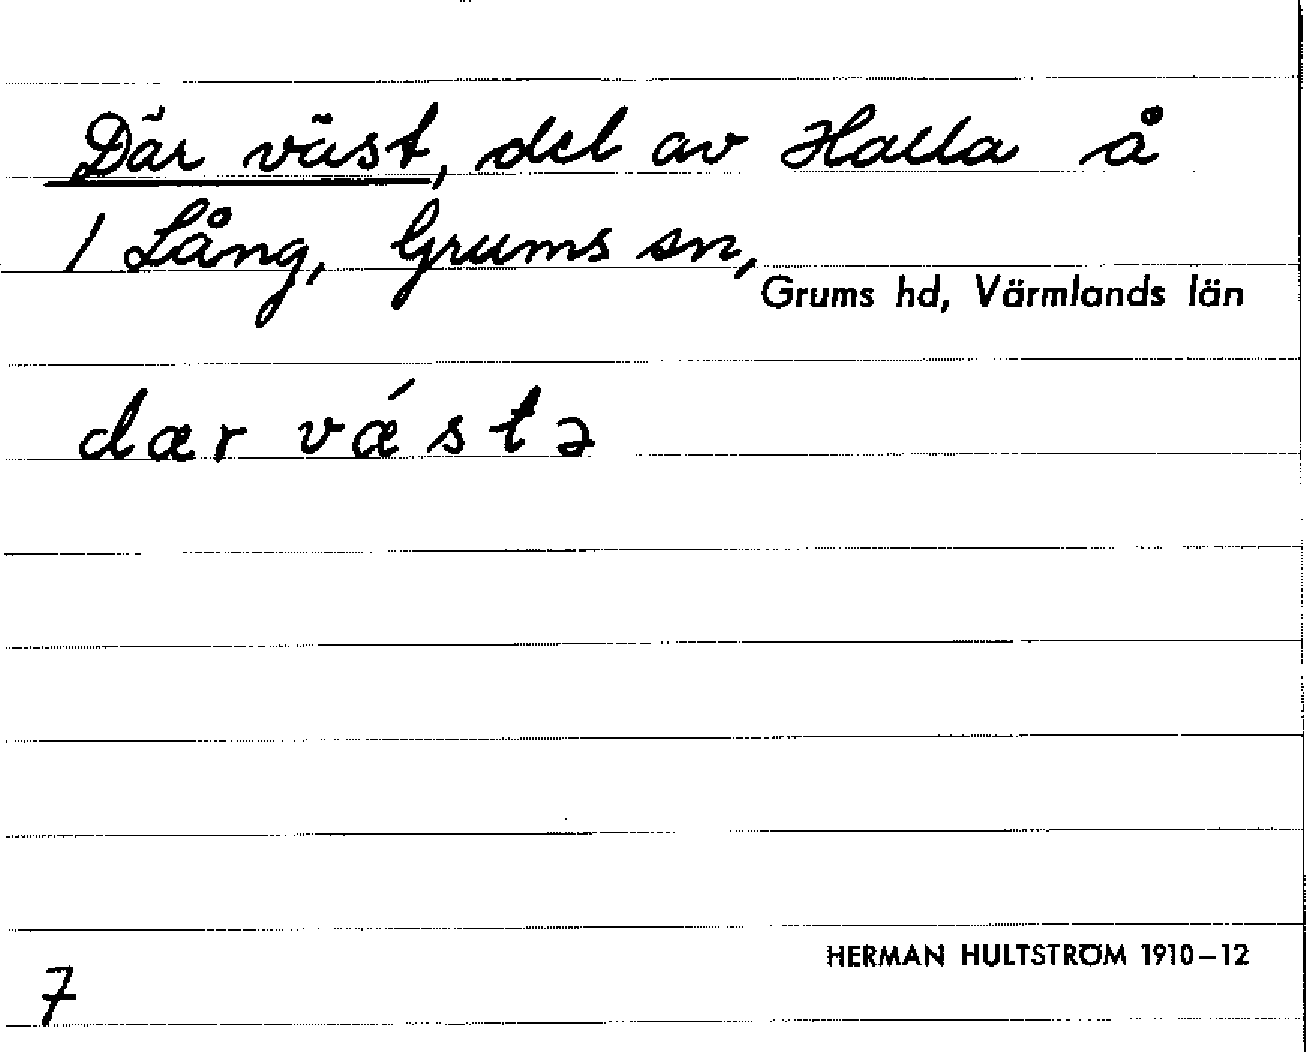 Där väst, del av Halla å
/ Lång, Grums sn,
Grums hd, Värmlands län
dær vǽstə
HERMAN HULTSTRÖM 1910–12
7